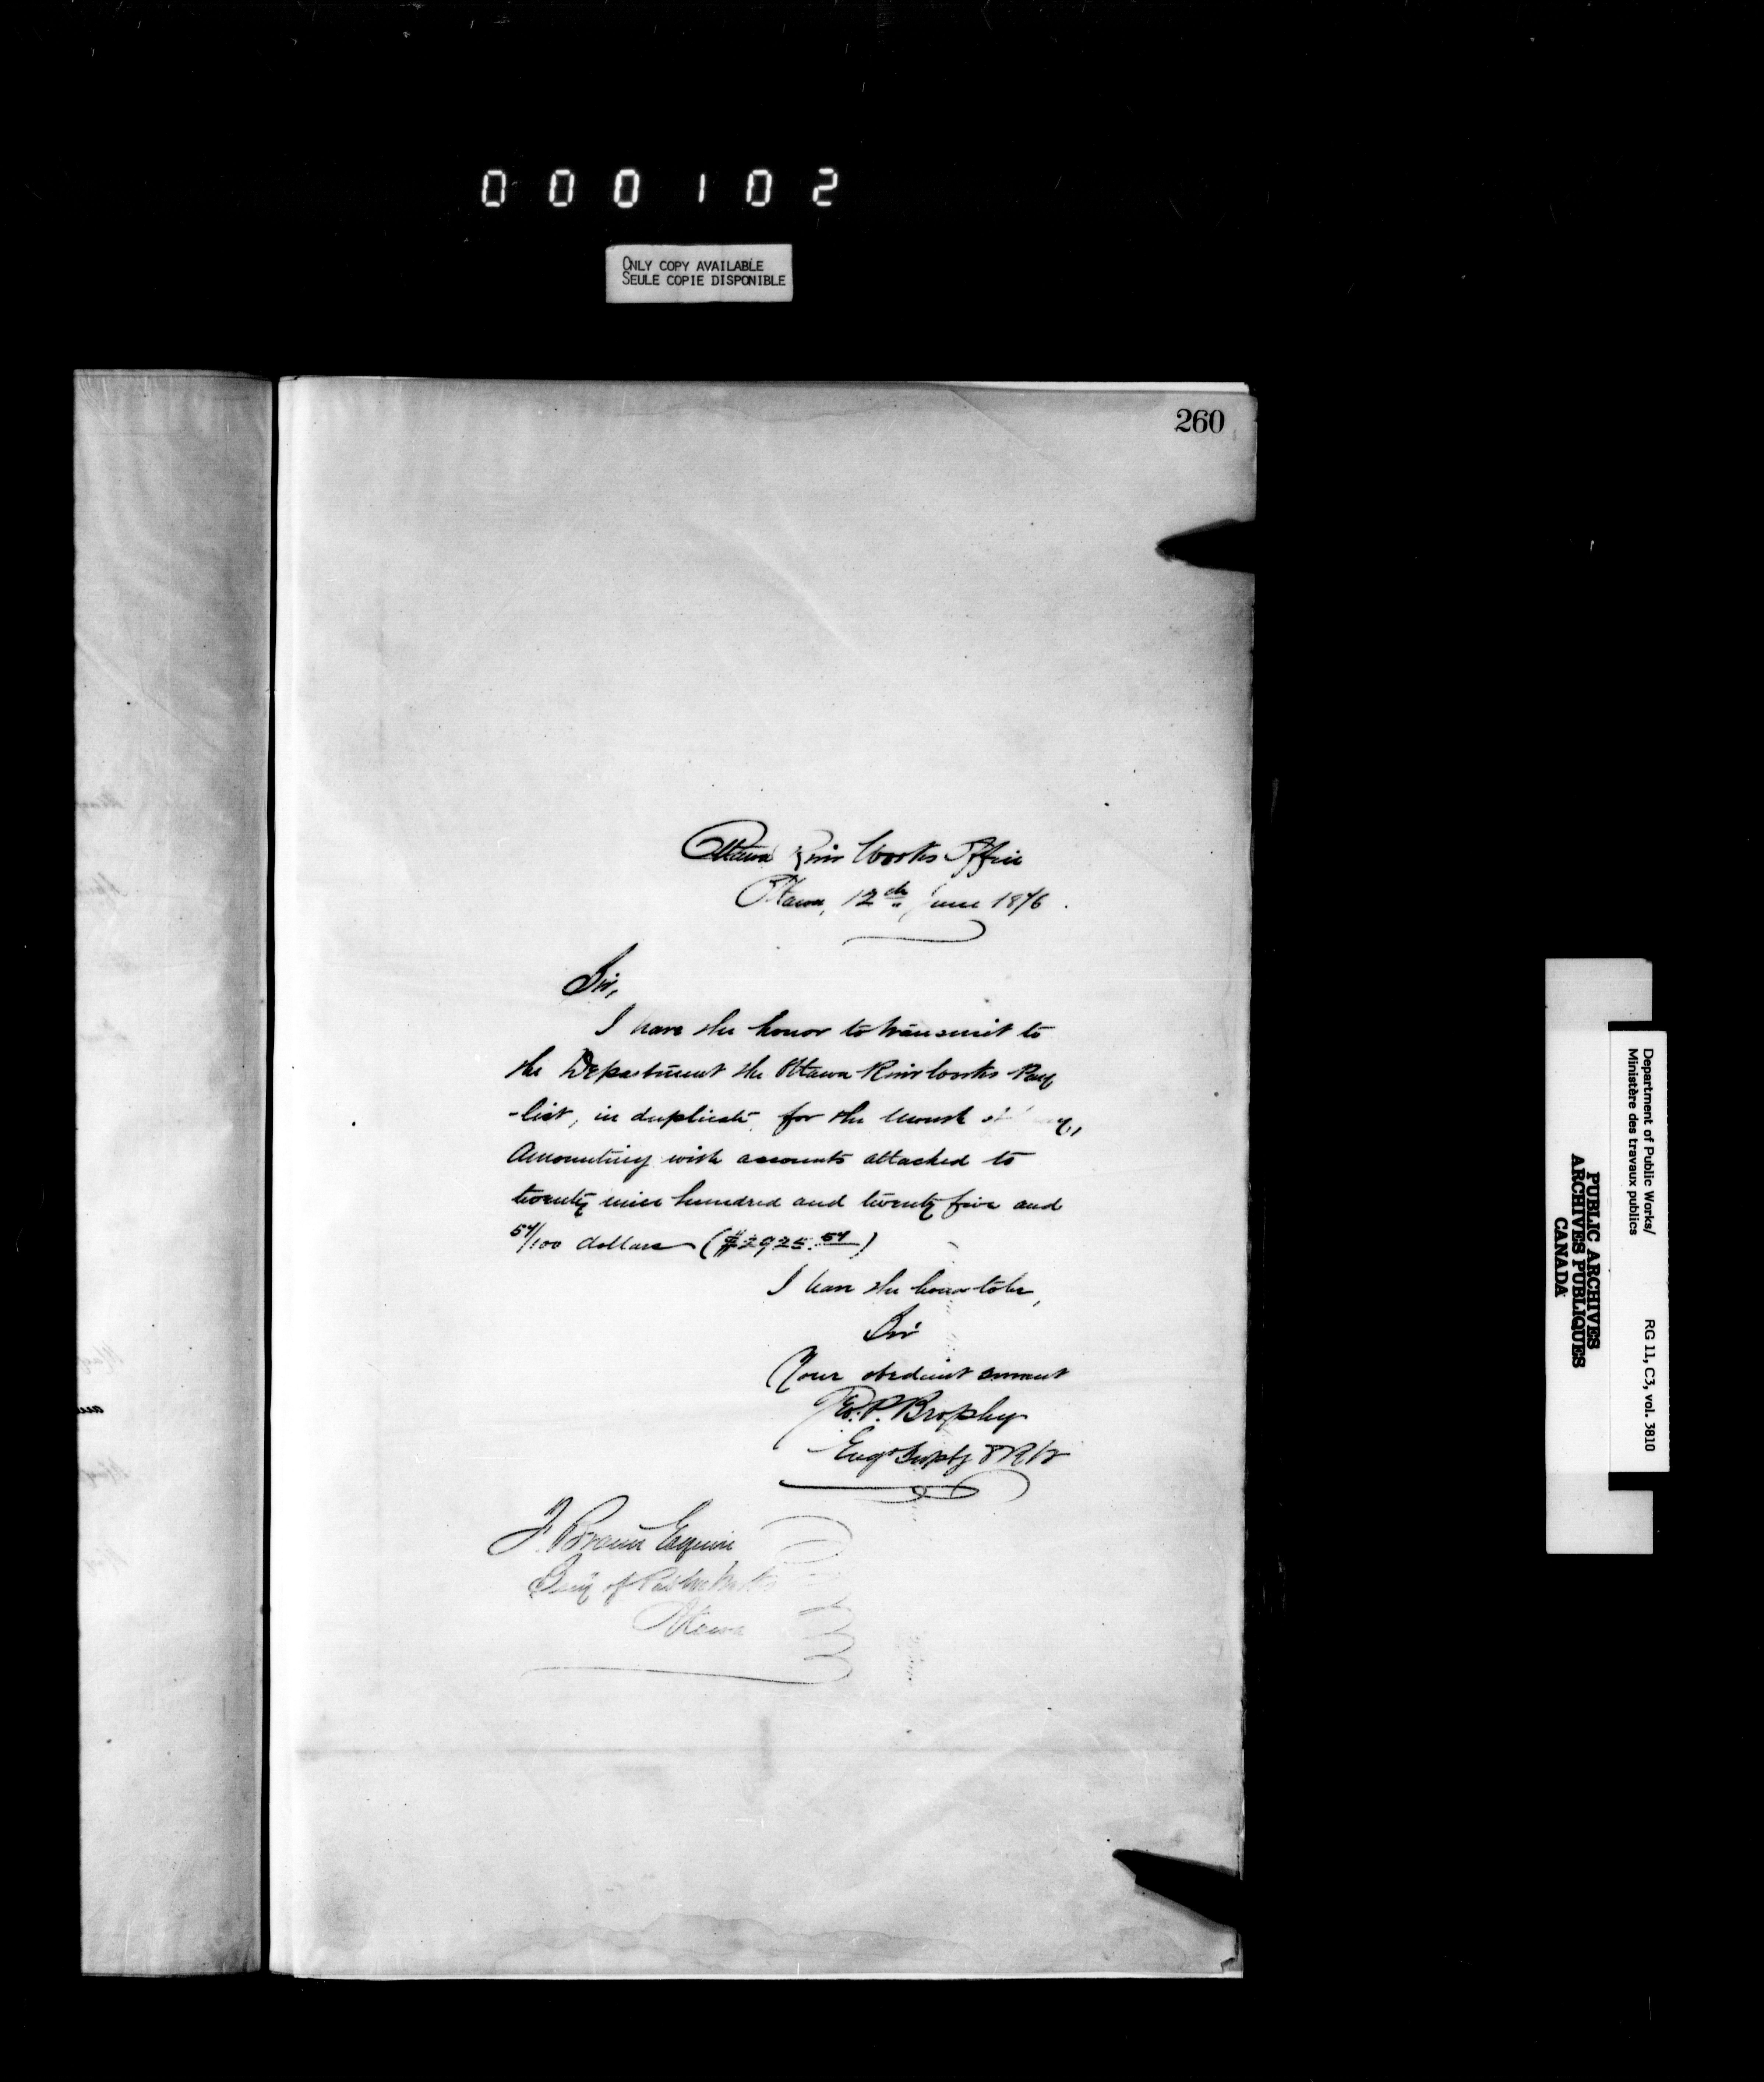 000102
ONLY COPY AVAILABLE
SEULE COPIE DISPONIBLE
260
Ottawa River Works Office
Ottawa, 12th June 1876.
Sir,
I have the honor to transmit to
the Department the Ottawa River Works Pay
-list, in duplicate, for the month
Amounting with accounts attached to
twenty nine hundred and twenty five and
57/100 dollars ($2925.57)
I have the honor to be,
Sir
Your obedient servant
Geo. P. Brophy
Engr Supt O R W
F. Braun Esquire
Secy of Public Works
Ottawa
Department of Public Works/
Ministère des travaux publics
RG 11, C3, vol. 3810
PUBLIC ARCHIVES
ARCHIVES PUBLIQUES
CANADA